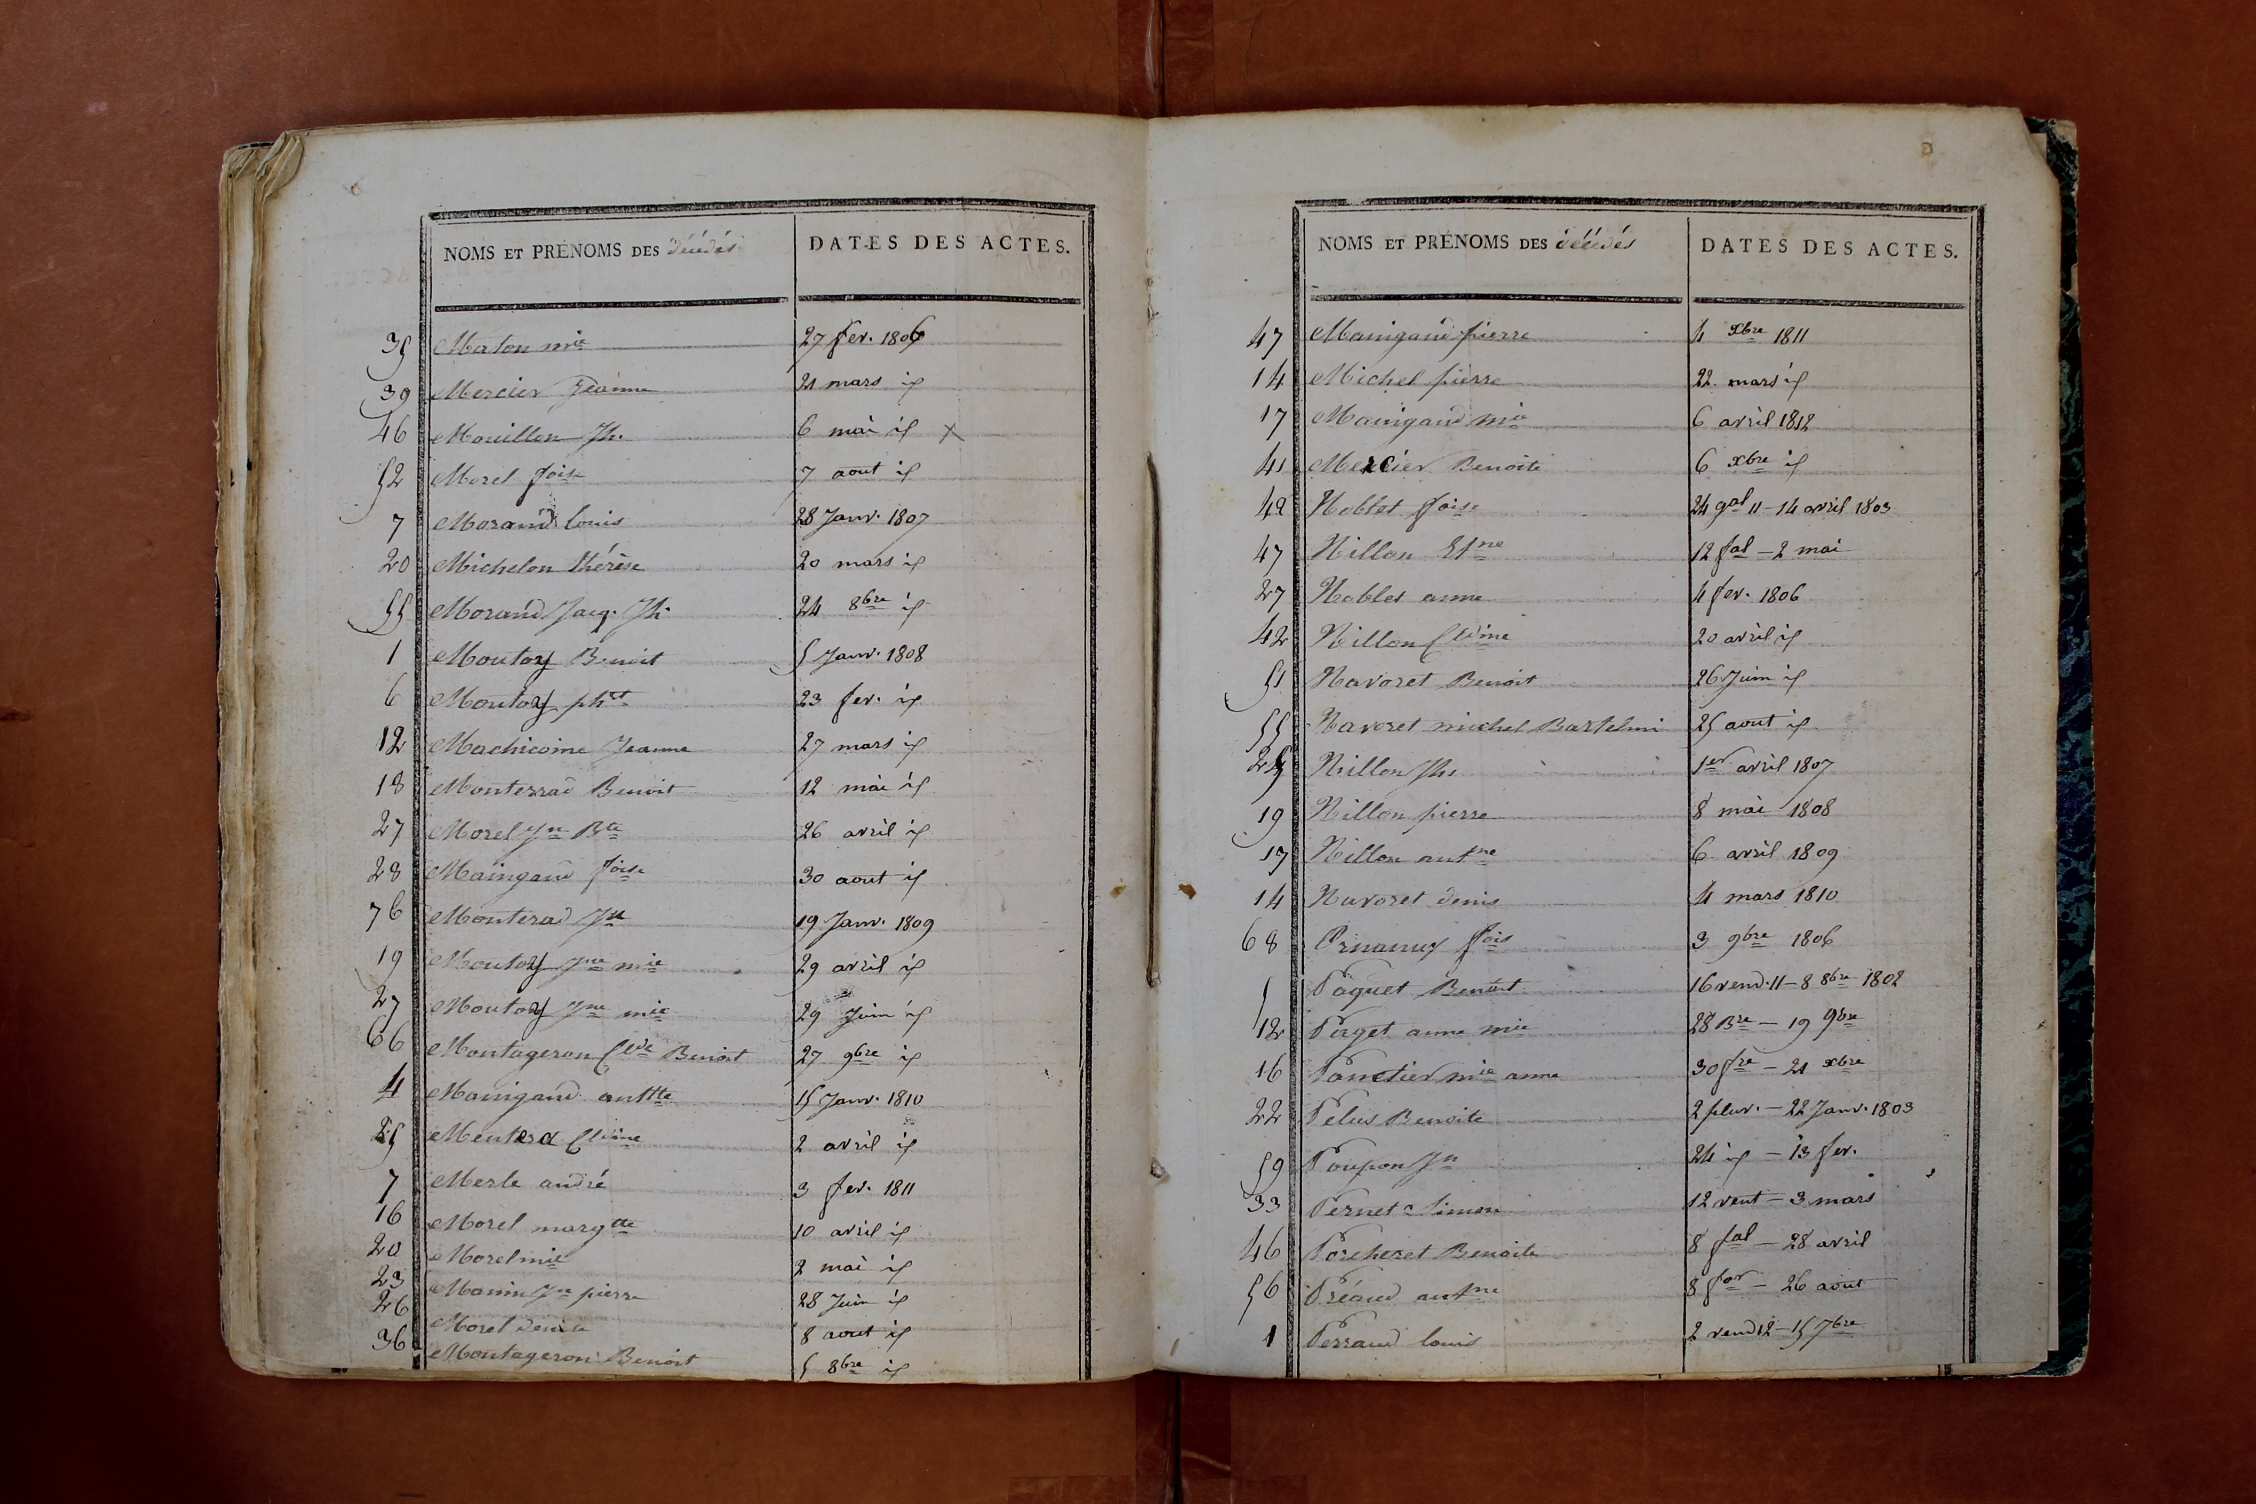 NOMS ET PRÉNOMS DES décédés DATES DES ACTES.
35 Maton mie 27 fev. 1806
39 Mercier Jeanne 21 mars id
46 Mouillon Jh. 6 mai id X
52 Morel foise 7 aout id
7 Morand louis 28 Janv. 1807
20 Michelon thérèse 20 mars id
55 Morand Jacq. Jh. 24 8bre id
1 Moutoy Benoit 5 Janv. 1808
6 Moutoy phte 23 fev. id
12 Machicoine Jeanne 27 mars id
18 Monterrad Benoit 12 mai id
27 Morel Jn Bte 26 avril id
28 Maingaud foise 30 aout id
76 Monterad Jn 19 Janv. 1809
19 Moutoy Jne mie 29 avril id
27 Moutoy Jne mie 29 Juin id
66 Montageron Clde Benoit 27 9bre id
4 Maingaud anttte 15 Janv. 1810
25 Cldine 2 avril id
7 Merle andré 3 fev. 1811
16 Morel margtte 10 avril id
20 Morel mie 2 mai id
23 Manin Jn pierre 28 Juin id
26 Morel denise 8 aout id
36 Montageron Benoit 5 8bre id
NOMS ET PRÉNOMS DES décédés DATES DES ACTES.
47 Maingaud pierre 4 xbre 1811
14 Michel pierre 22 mars id
17 Maingaud mie 6 avril 1812
41 Mercier Benoite 6 xbre id
42 Noblet foise 24 gal 11 – 14 avril 1803
47 Nillon Etne 12 fal – 2 mai
27 Noblet anne 4 fev. 1806
42 Nillon Cldine 20 avril id
51 Navoret Benoit 26 Juin id
55 Navoret michel Bartelmi 25 aout id
25 Nillon Jh. 1er avril 1807
19 Nillon pierre 8 mai 1808
17 Nillon antne 6 avril 1809
14 Navoret denis 4 mars 1810
68 fois 3 9bre 1806
5 Paquet Benoit 16 vend. 11 – 8 8bre 1802
12 Paget anne mie 28 Bre – 19 9bre
16 Panetier mie anne 30 fre – 21 xbre
22 Pelus Benoite 2 pluv. – 22 Janv. 1803
59 Poupon Jn 24 id – 13 fev.
33 Pernet Simon 12 vent – 3 mars
46 Porcheret Benoite 8 fal – 28 avril
56 Préaud antne 8 for – 26 aout
1 Perraud louis 2 vend 12 – 15 7bre